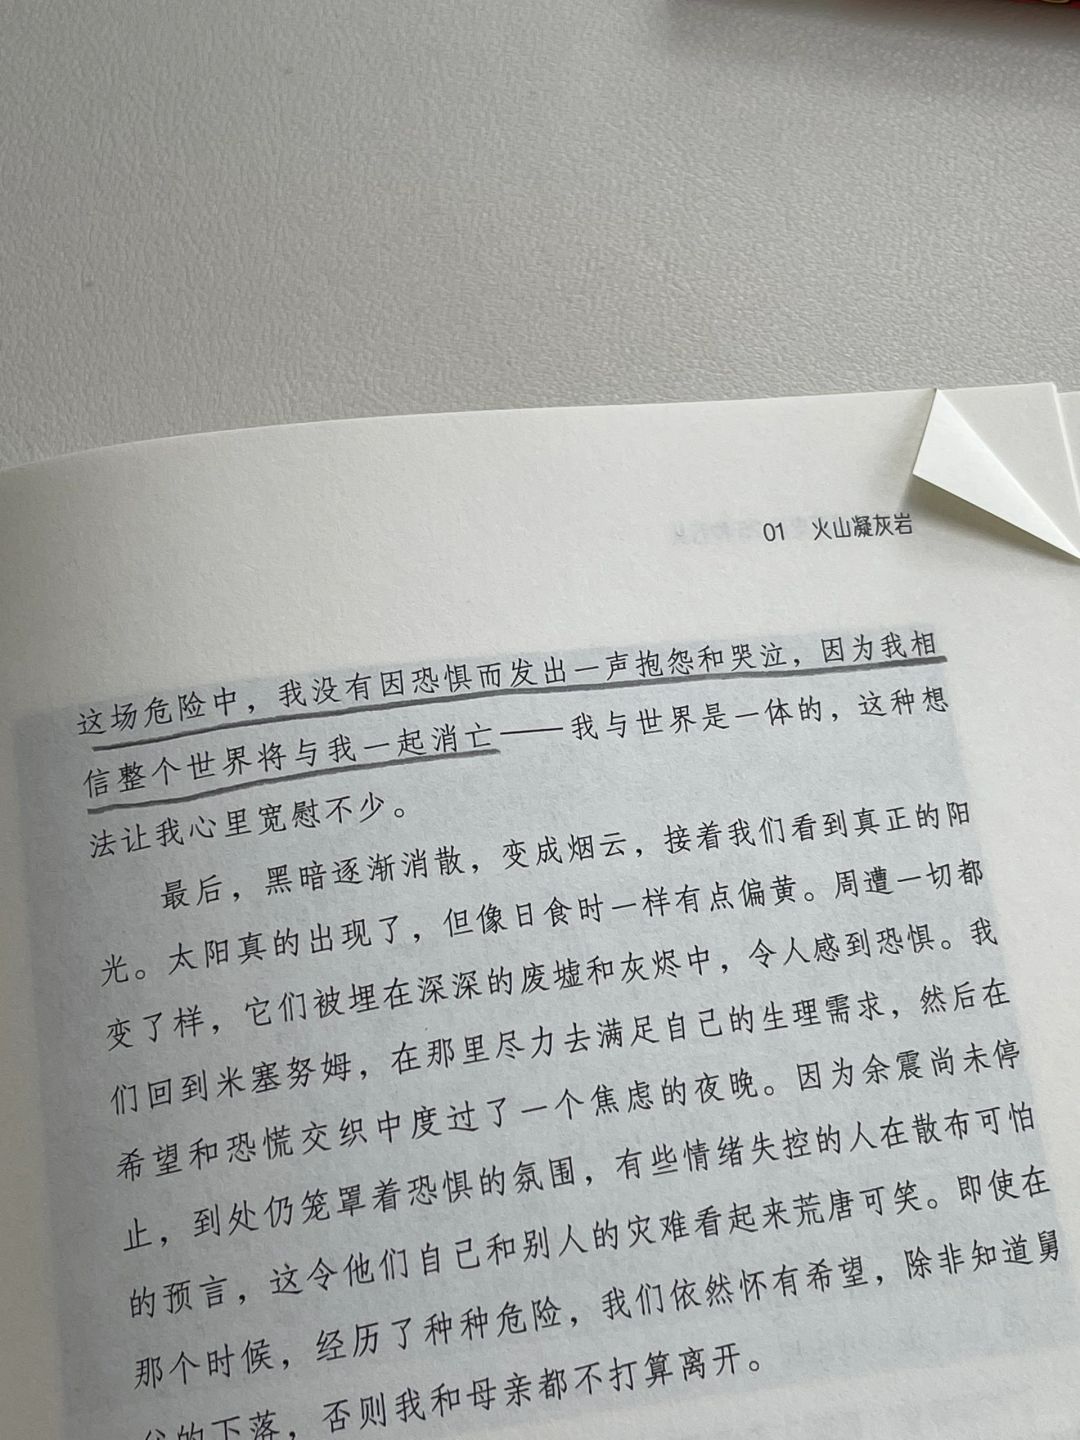 01 火山凝灰岩
这场危险中，我没有因恐惧而发出一声抱怨和哭泣，因为我相
信整个世界将与我一起消亡——我与世界是一体的，这种想
法让我心里宽慰不少。
最后，黑暗逐渐消散，变成烟云，接着我们看到真正的阳
光。太阳真的出现了，但像日食时一样有点偏黄。周遭一切都
变了样，它们被埋在深深的废墟和灰烬中，令人感到恐惧。我
们回到米塞努姆，在那里尽力去满足自己的生理需求，然后在
希望和恐慌交织中度过了一个焦虑的夜晚。因为余震尚未停
止，到处仍笼罩着恐惧的氛围，有些情绪失控的人在散布可怕
的预言，这令他们自己和别人的灾难看起来荒唐可笑。即使在
那个时候，经历了种种危险，我们依然怀有希望，除非知道舅
的下落，否则我和母亲都不打算离开。